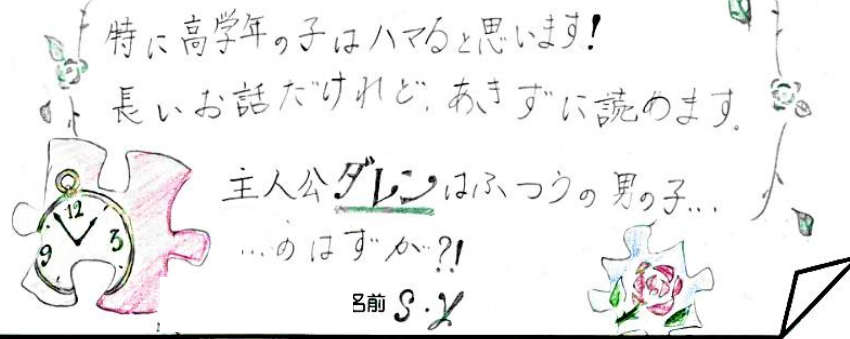 特に高学年の子はハマると思います!
長いお話だけれど、あきずに読めます。
主人公ダレンはふつうの男の子…
…のはずが?!
名前 S.Y
12
3
9